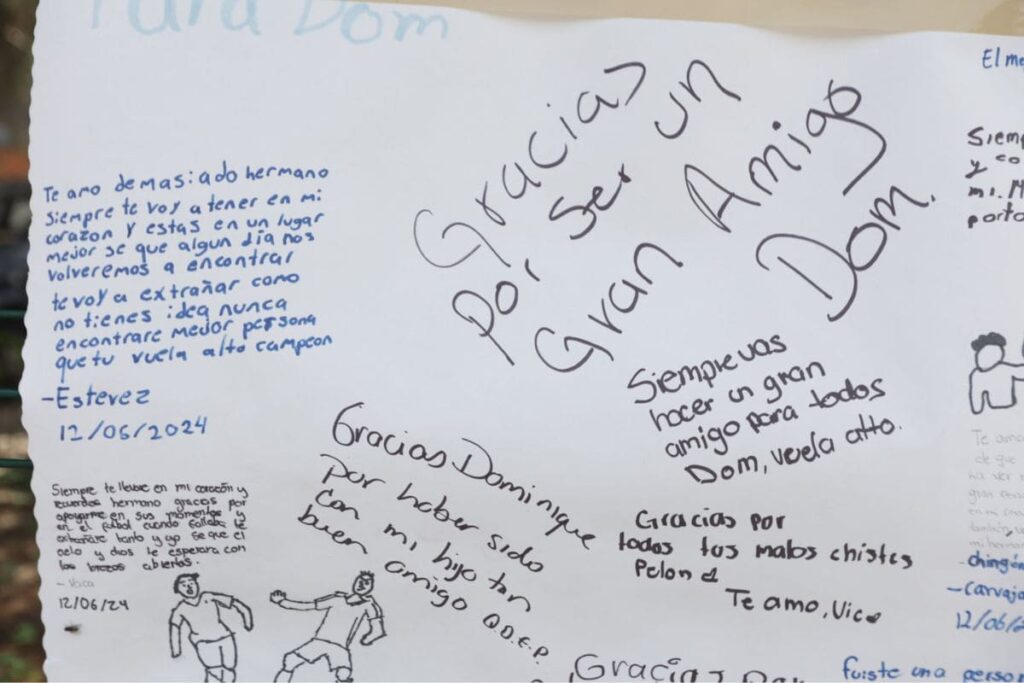 Para Dom
Te amo demasiado hermano
Siempre te voy a tener en mi
corazon y estas en un lugar
mejor se que algun dia nos
volveremos a encontrar
te voy a extrañar como
no tienes idea nunca
encontrare mejor persona
que tu vuela alto campeon
-Estevez
12/06/2024
Gracias
por ser un
Gran Amigo
Dom.
Siempre vas
hacer un gran
amigo para todos
Dom, vuela alto.
Siempre te llevare en mi corazón y
recuerdos hermano gracias por
apoyarme en sus momentos y
en el futbol cuando fallaba le
extrañare tanto y yo se que el
cielo y dios le esperara con
los brazos abiertos.
12/06/24
Gracias Dominique
por haber sido
con mi hijo tan
buen amigo Q.D.E.P.
Gracias por
todos tus malos chistes
Pelon
Te amo, Vic
El me
Siemp
y co
mi. M
porto
Te amo
de que
gran
mi herman
-chingón
-Carvaja
12/06/2
Gracias
fuiste una person